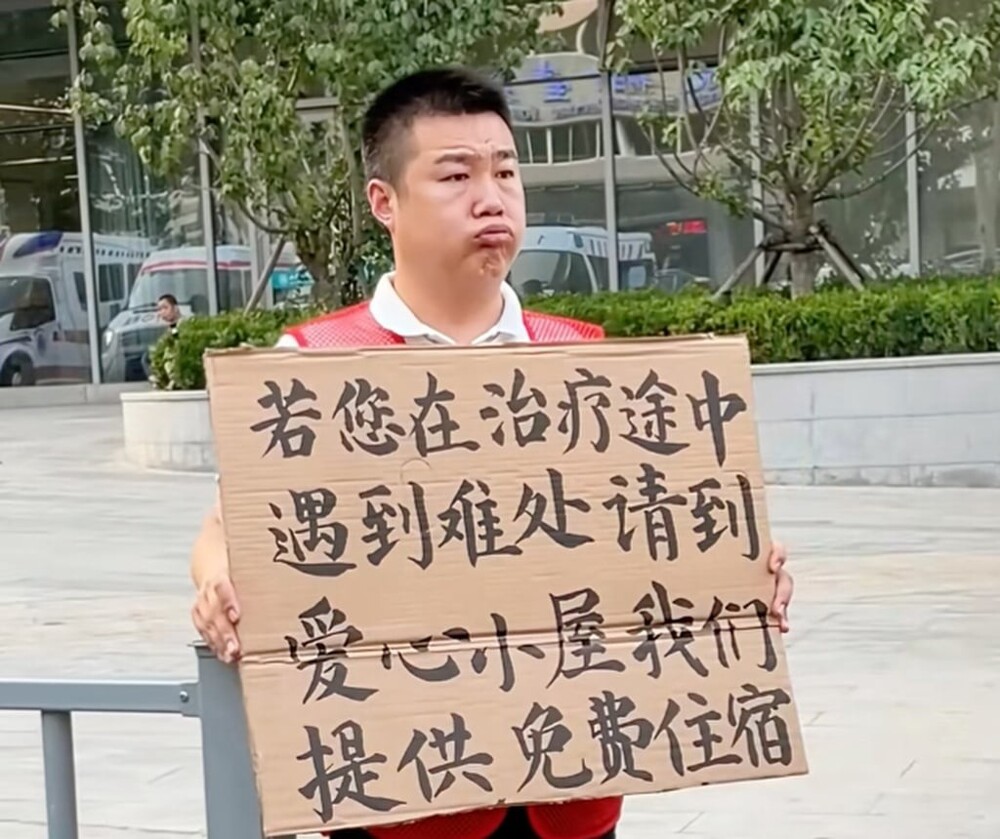 若您在治疗途中
遇到难处请到
爱心小屋我们
提供免费住宿